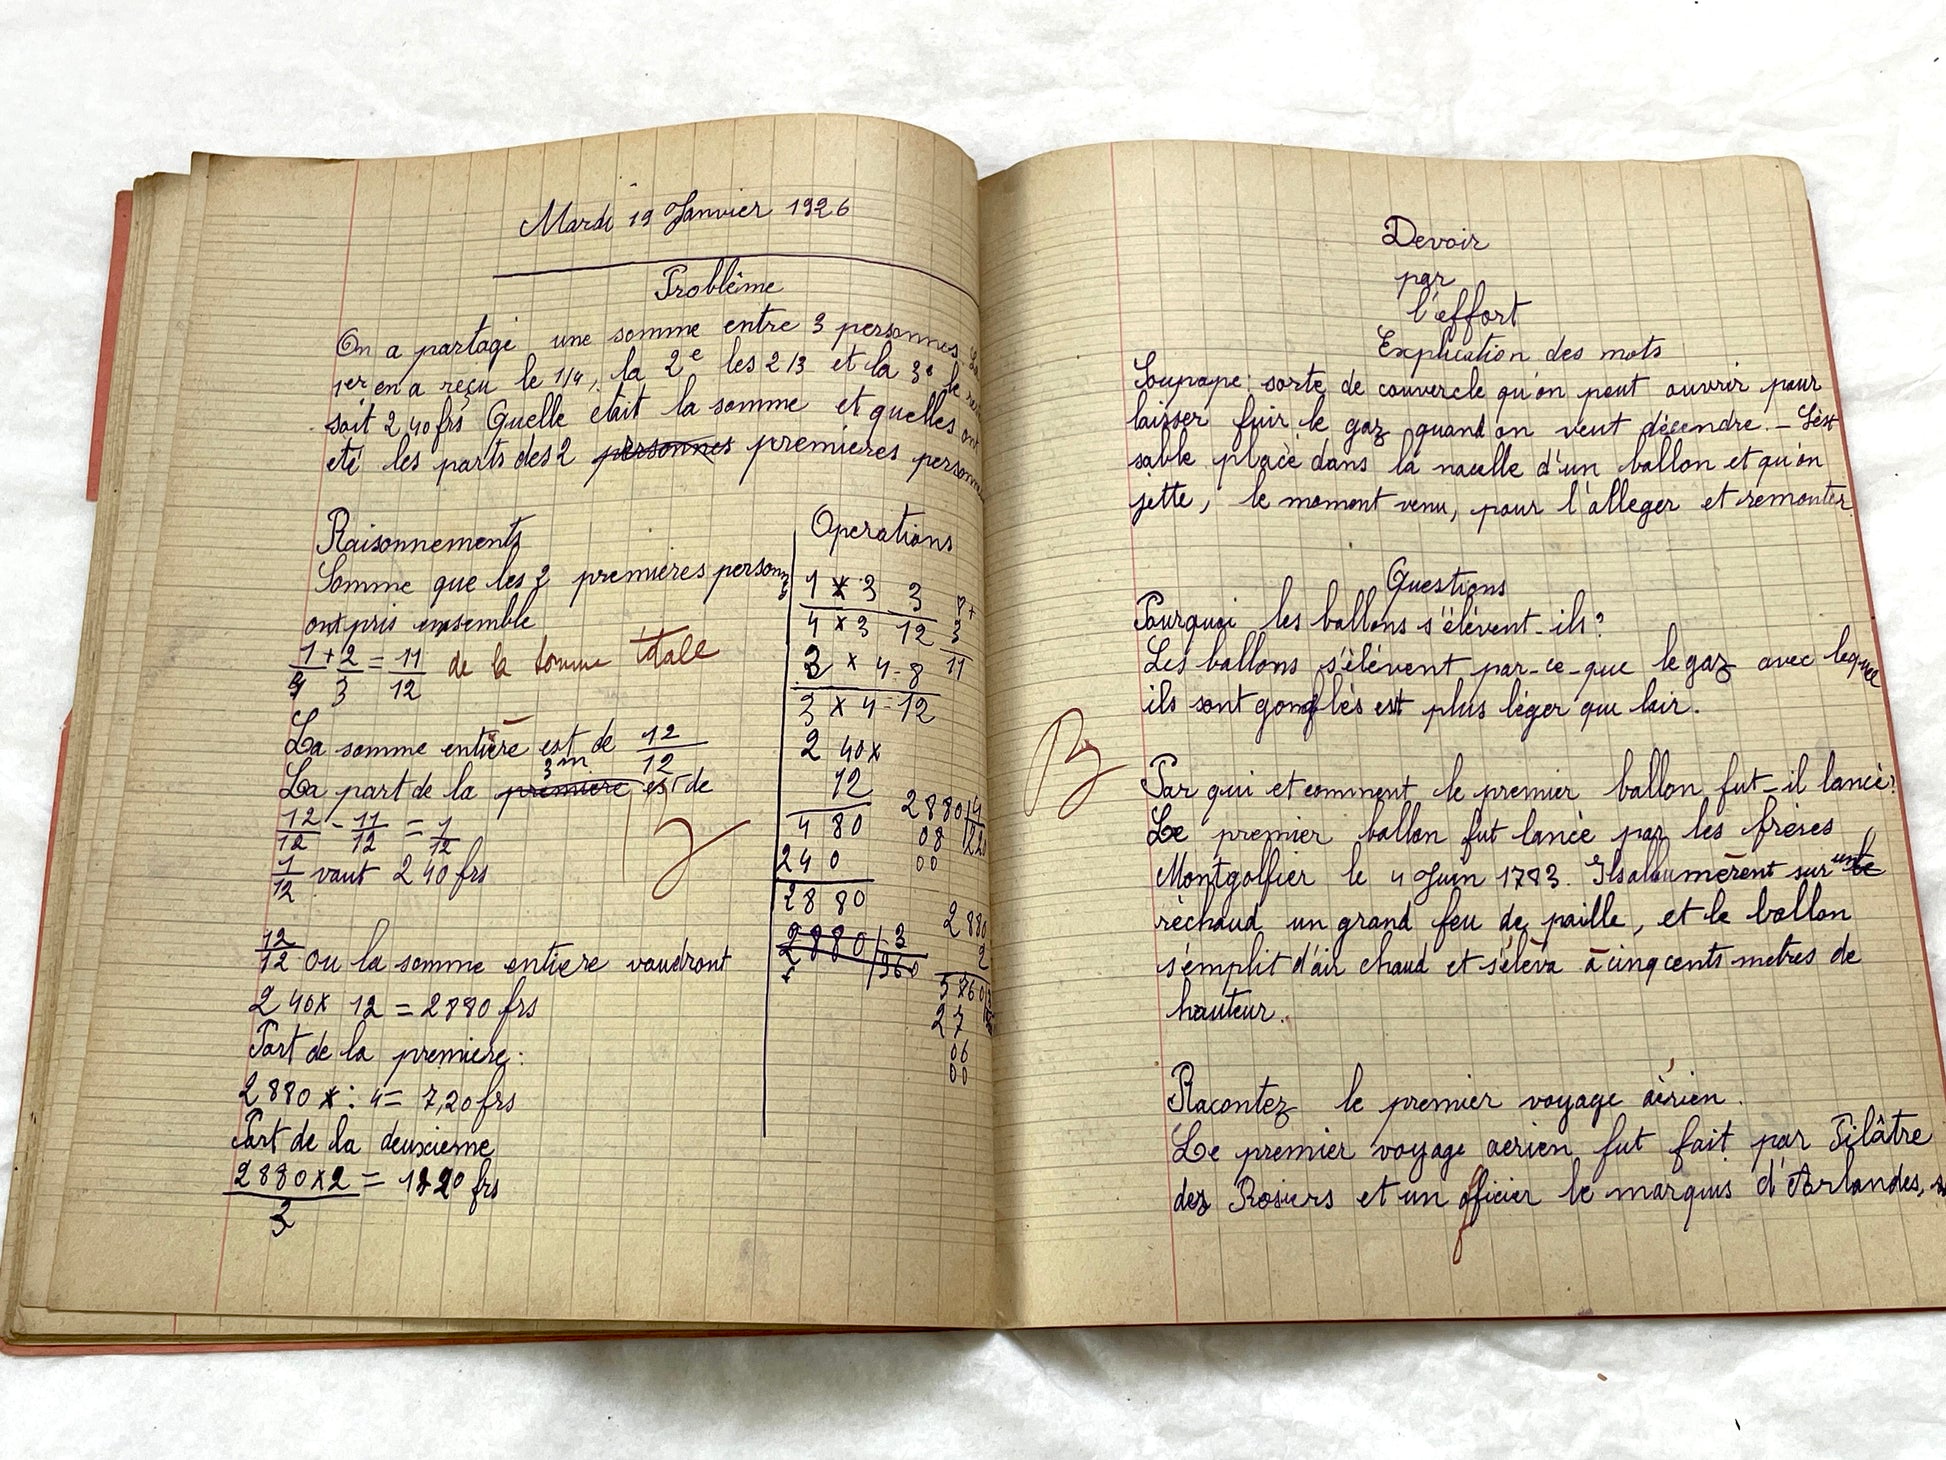 Mardi 19 Janvier 1926
Problème
On a partagé une somme entre 3 personnes. La
1er en a reçu le 1/4, la 2e les 2/3 et la 3e le
soit 240 frs Quelle était la somme et quelles ont
été les parts des 2 personnes premières personnes
Raisonnements
Somme que les 2 premières person
ont pris ensemble
1/4 + 2/3 = 11/12 de la somme totale
La somme entière est de 12/12
3m
La part de la première est de
12/12 - 11/12 = 1/12
1/12 vaut 240 frs
12/12 ou la somme entiere vaudront
240 x 12 = 2880 frs
Part de la premiere :
2880 x : 4 = 7,20 frs
Part de la deuxieme
2880 x 2 = 1920 frs
3
Operations
1 x 3 3 8 +
4 x 3 12 3
2 x 4 = 8 11
3 x 4 = 12
2 40 x
12
4 80
2 4 0
28 80
2880 4
08
00
2880 3
960
2 880
2
5 760
27
06
00
Devoir
par
l'effort
Explication des mots
Soupape : sorte de couvercle qu'on peut ouvrir pour
laisser fuir le gaz quand on veut décendre. - Lest
sable placé dans la nacelle d'un ballon et qu'on
jette, le moment venu, pour l'alleger et remonter
Questions
Pourquoi les ballons s'élèvent-ils ?
Les ballons s'élèvent par-ce-que le gaz avec lequel
ils sont gonflés est plus léger que lair.
B
Par qui et comment le premier ballon fut-il lancé?
Le premier ballon fut lancé par les frères
Montgolfier le 4 Juin 1783. Ils allumèrent sur un
réchaud un grand feu de paille, et le ballon
s'emplit d'air chaud et s'éleva à cinq cents metres de
hauteur.
Racontez le premier voyage aérien.
Le premier voyage aerien fut fait par Pilâtre
dez Rosiers et un officier le marquis d'Arlandes,